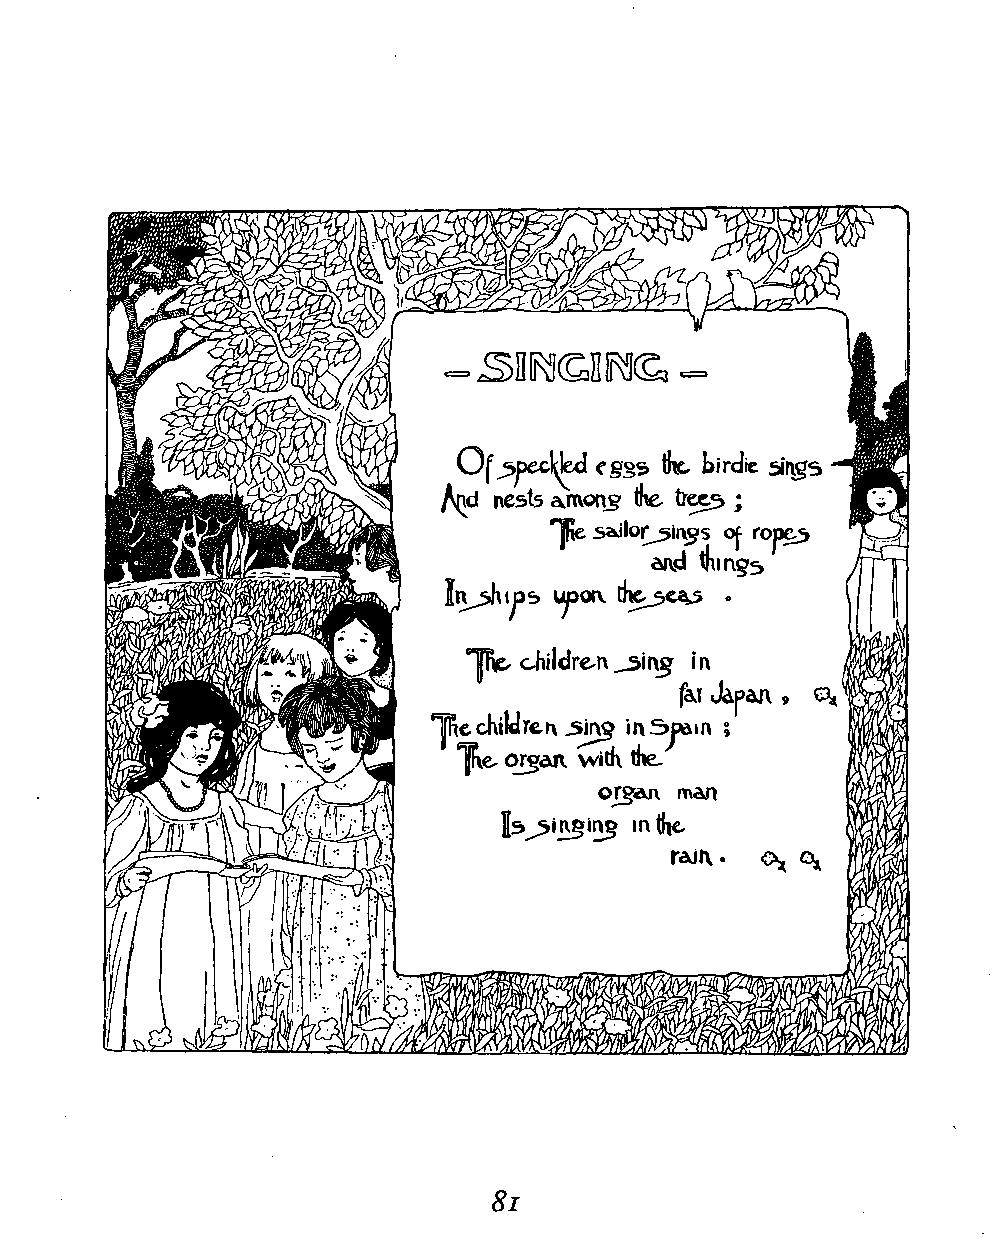 - SINGING -
Of speckled eggs the birdie sings
And nests among the trees ;
The sailor sings of ropes
and things
In ships upon the seas .
The children sing in
far Japan ,
The children sing in Spain ;
The organ with the
organ man
Is singing in the
rain .
81